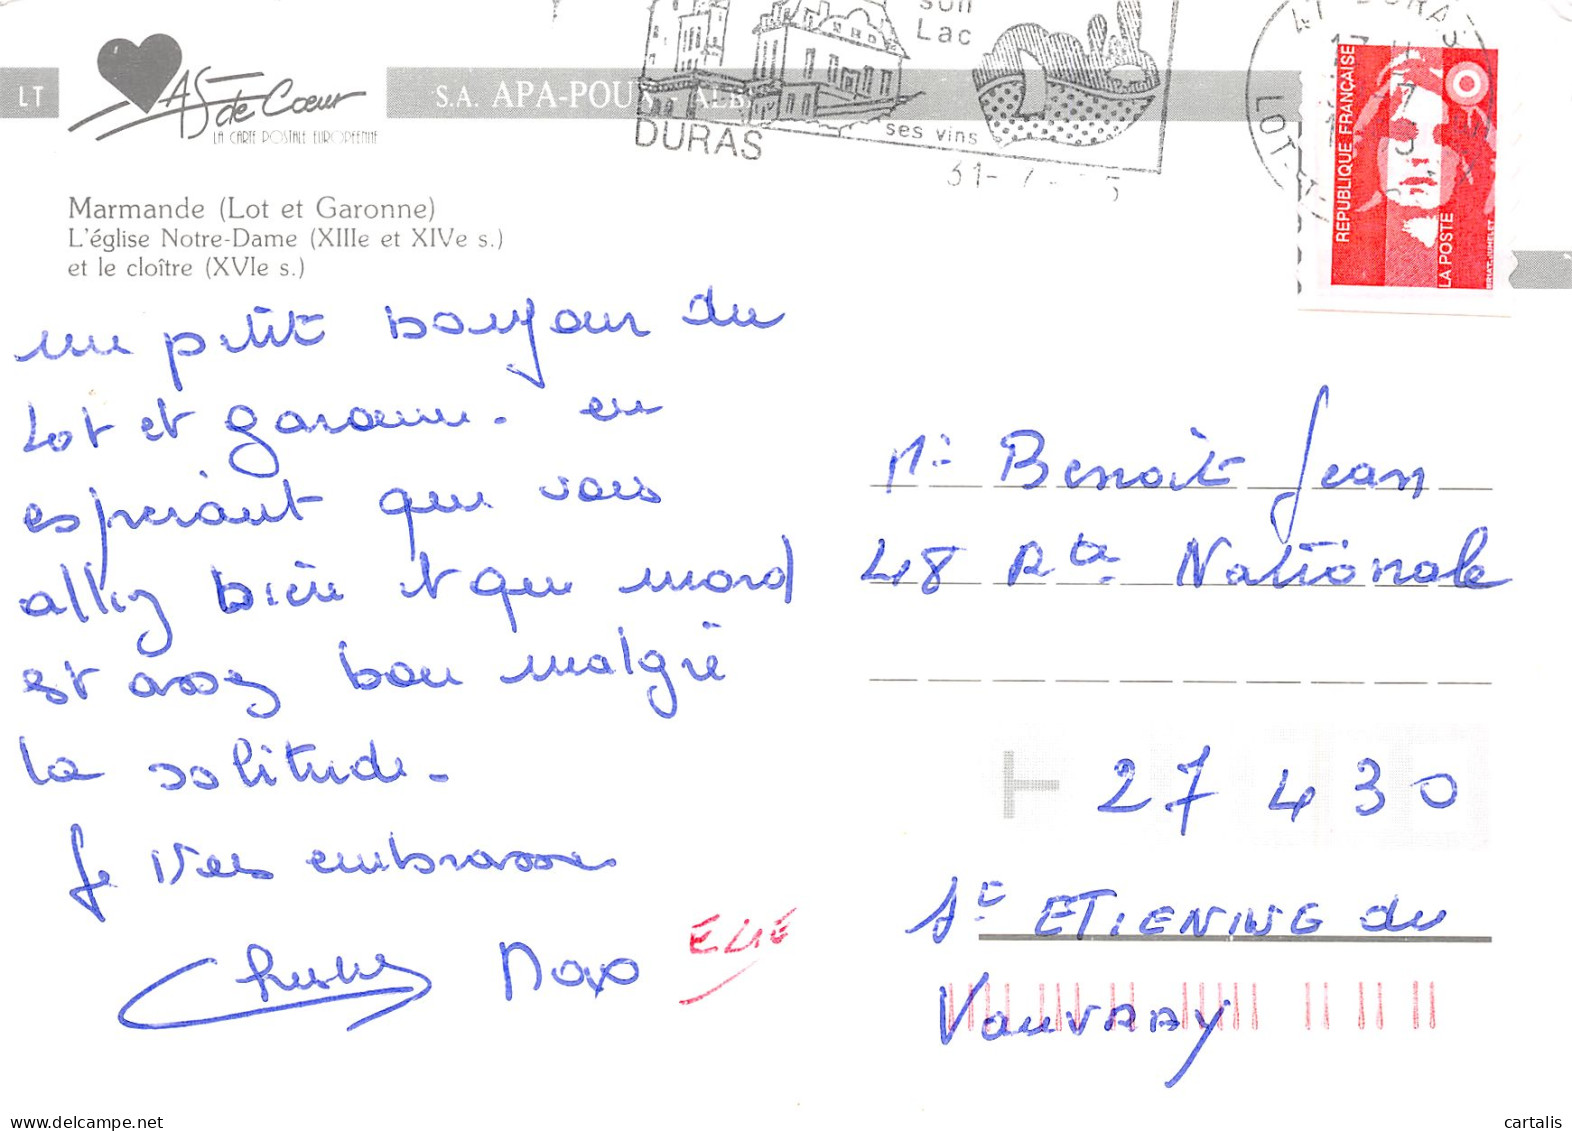 LT
AS de Cœur
LA CARTE POSTALE EUROPEENNE
S.A. APA-POUX - ALBI
son
Lac
ses vins
DURAS
31-7-
47 DURAS
LOT-
17 H
REPUBLIQUE FRANÇAISE
LA POSTE
BRIAT-JUMELET
Marmande (Lot et Garonne)
L'église Notre-Dame (XIIIe et XIVe s.)
et le cloître (XVIe s.)
un petit bonjour du
Lot et garonne. en
esperant que vous
alliez bien et que moral
est assez bon malgré
la solitude.
Je vous embrasse
ELIE
Mr Benoit Jean
48 Rte Nationale
27 430
St ETIENING du
VauvRAy
cartalis
www.delcampe.net